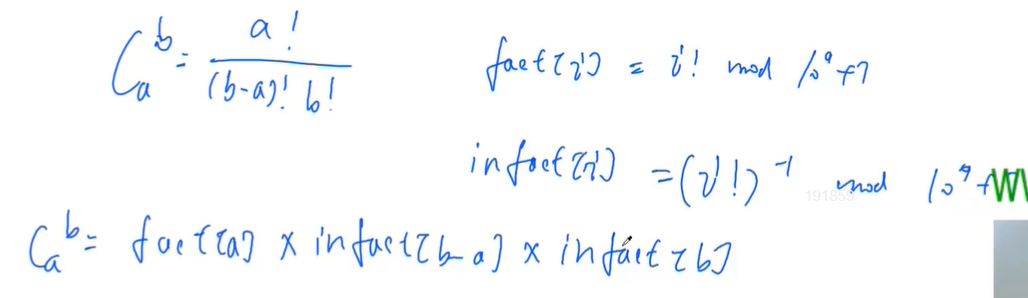 C_a^b = a! / (b-a)! b!
fact[i] = i! mod 10^9+7
infact[i] = (i!)^-1 mod 10^9+
191859
C_a^b = fact[a] x infact[b-a] x infact[b]